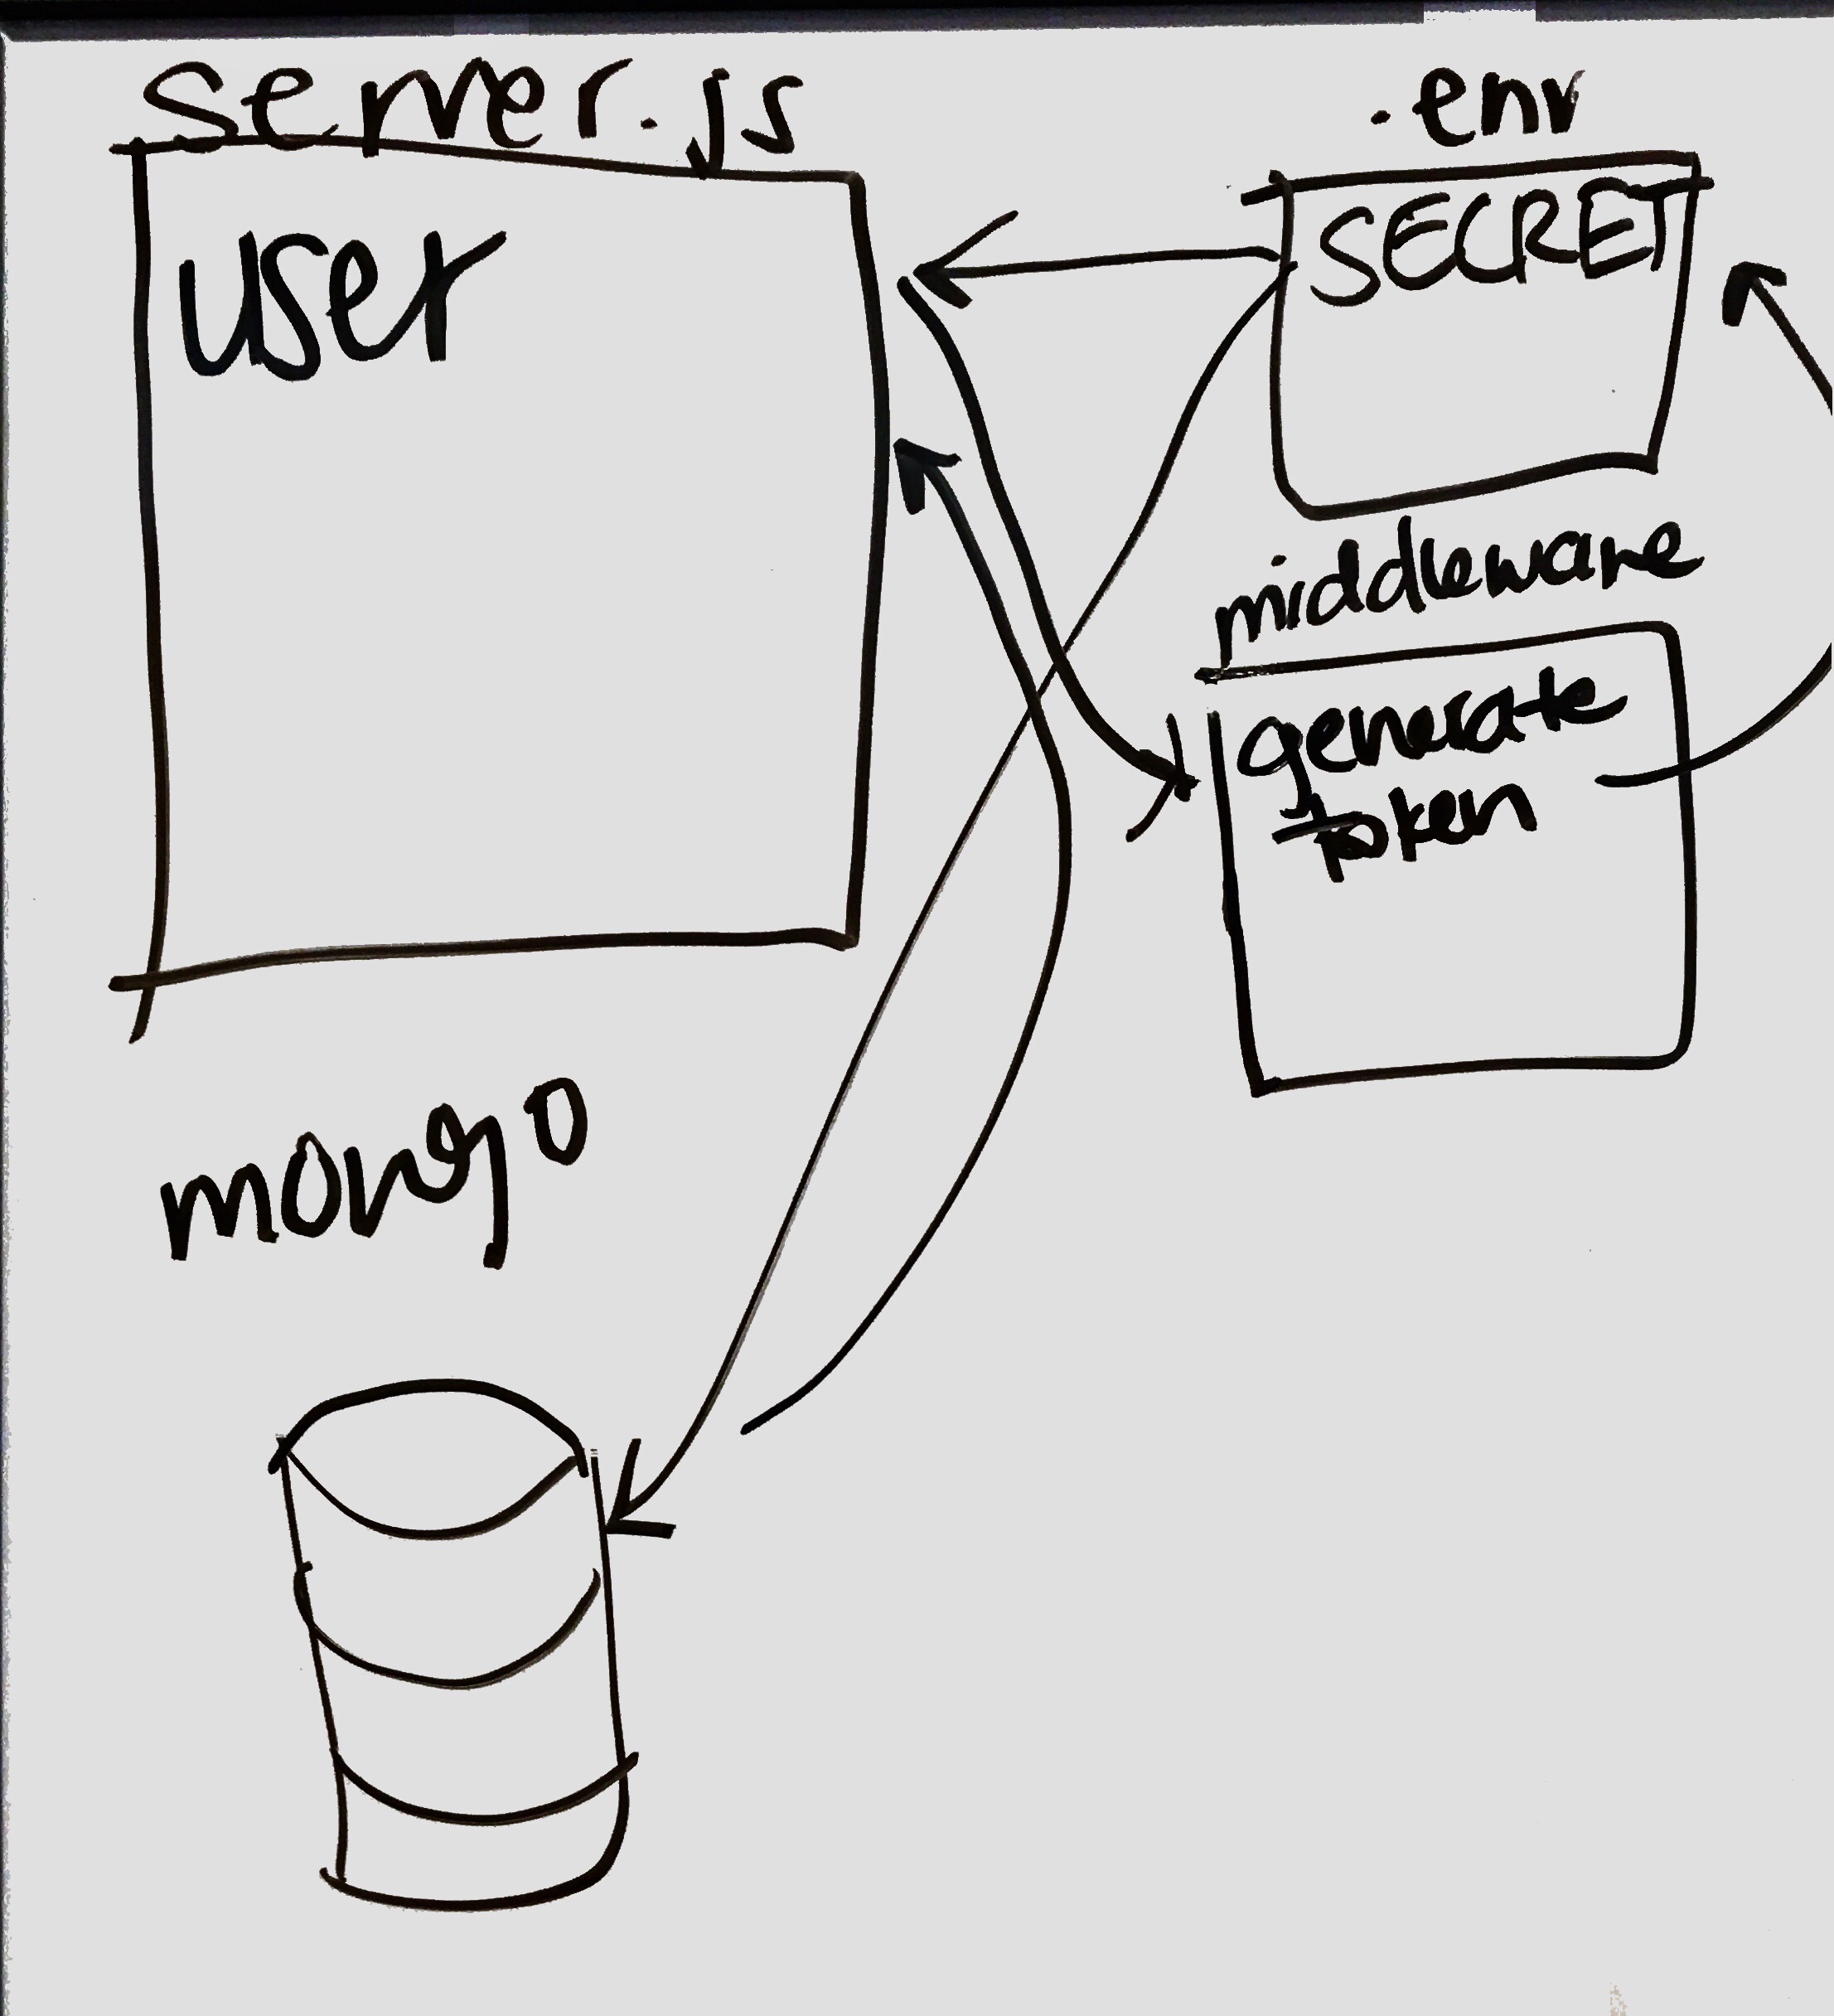 server.js
user
.env
SECRET
middleware
generate
token
mongo